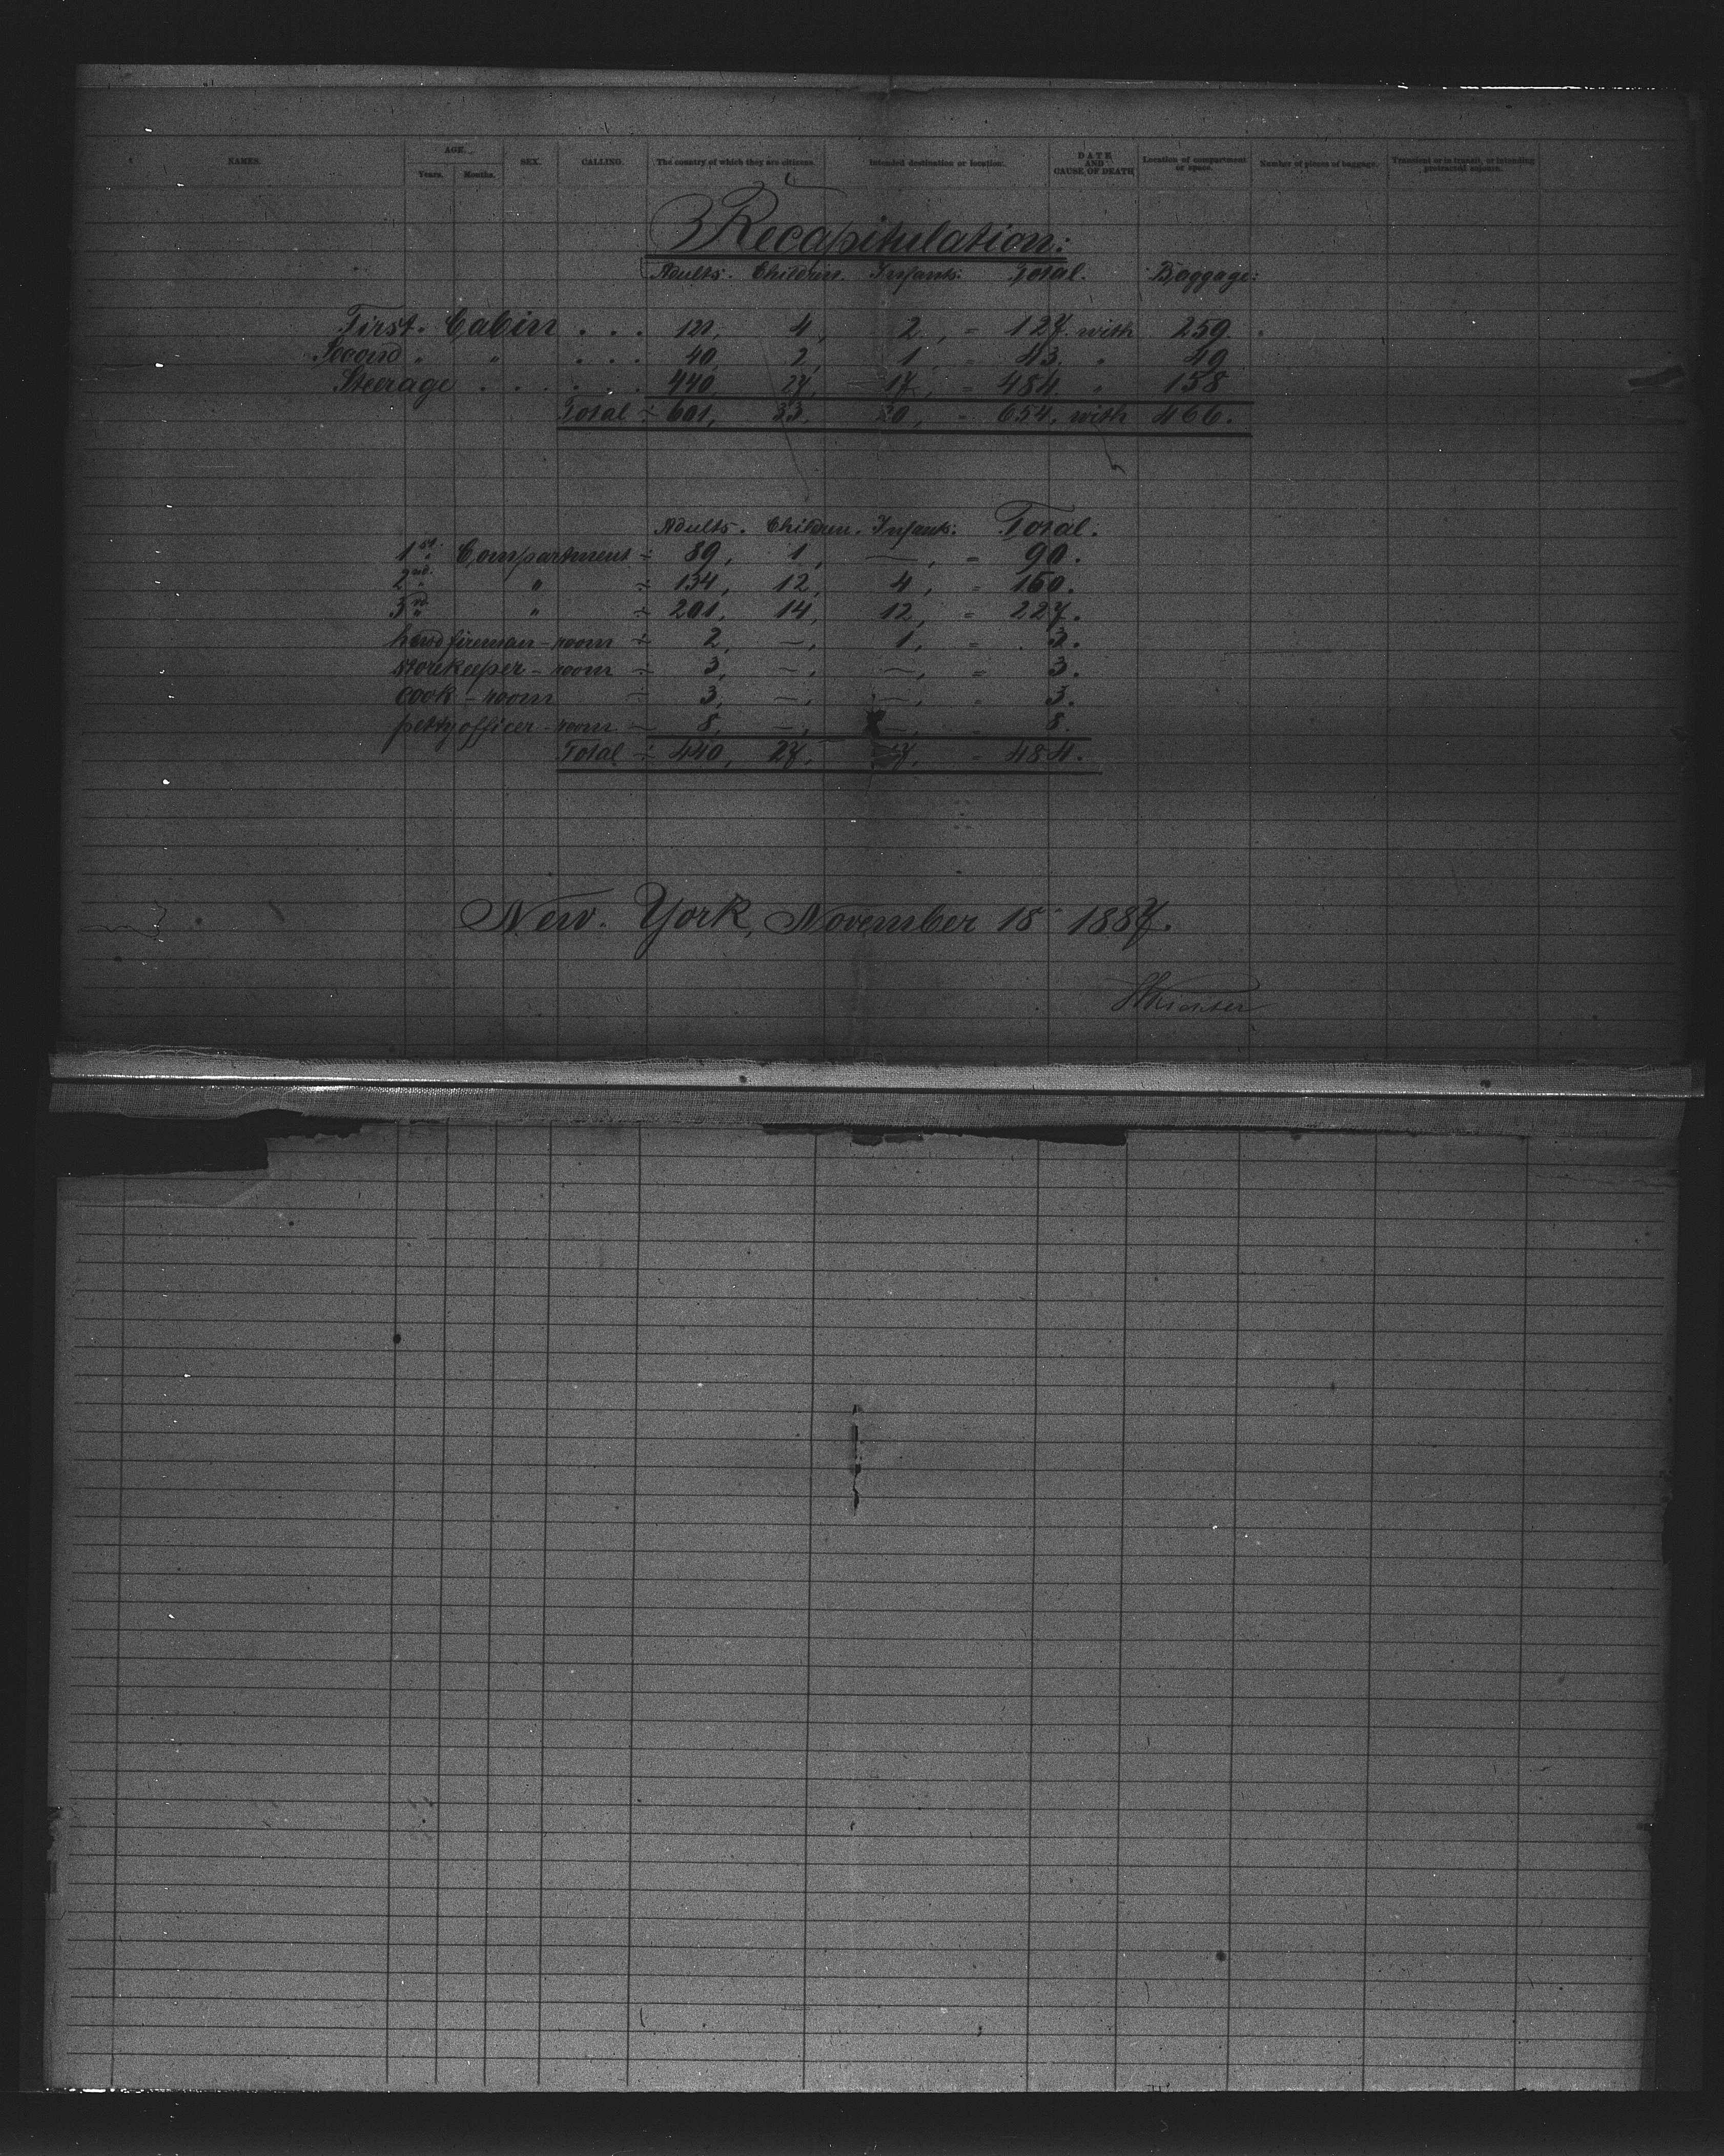 NAMES. AGE. Years. Months. SEX. CALLING. The country of which they are citizens. Intended destination or location. DATE AND CAUSE OF DEATH Location of compartment or space. Number of pieces of baggage. Transient or in transit, or intending protracted sojourn.
Recapitulation:
Adults. Children. Infants. Total. Baggage:
First. Cabin . . . 121, 4, 2, = 127. with 259.
Second " " . . . . 40, 2, 1, = 43. " 49.
Steerage . . . . . . 440, 27, 17, = 484. " 158
Total ÷ 601, 33, 20, = 654. with 466.
Adults. Children. Infants. Total.
1st. Compartment ÷ 89, 1, —, = 90.
2nd. " ÷ 134, 12, 4, = 150.
3rd " ÷ 201, 14, 12, = 227.
head fireman-room ÷ 2, —, 1, = 3.
storekeeper-room ÷ 3, —, —, = 3.
cook-room ÷ 3, —, —, = 3.
pettyofficer-room ÷ 8, —, —, = 8.
Total ÷ 440, 27, 17, = 484.
New. York, November 18 1887.